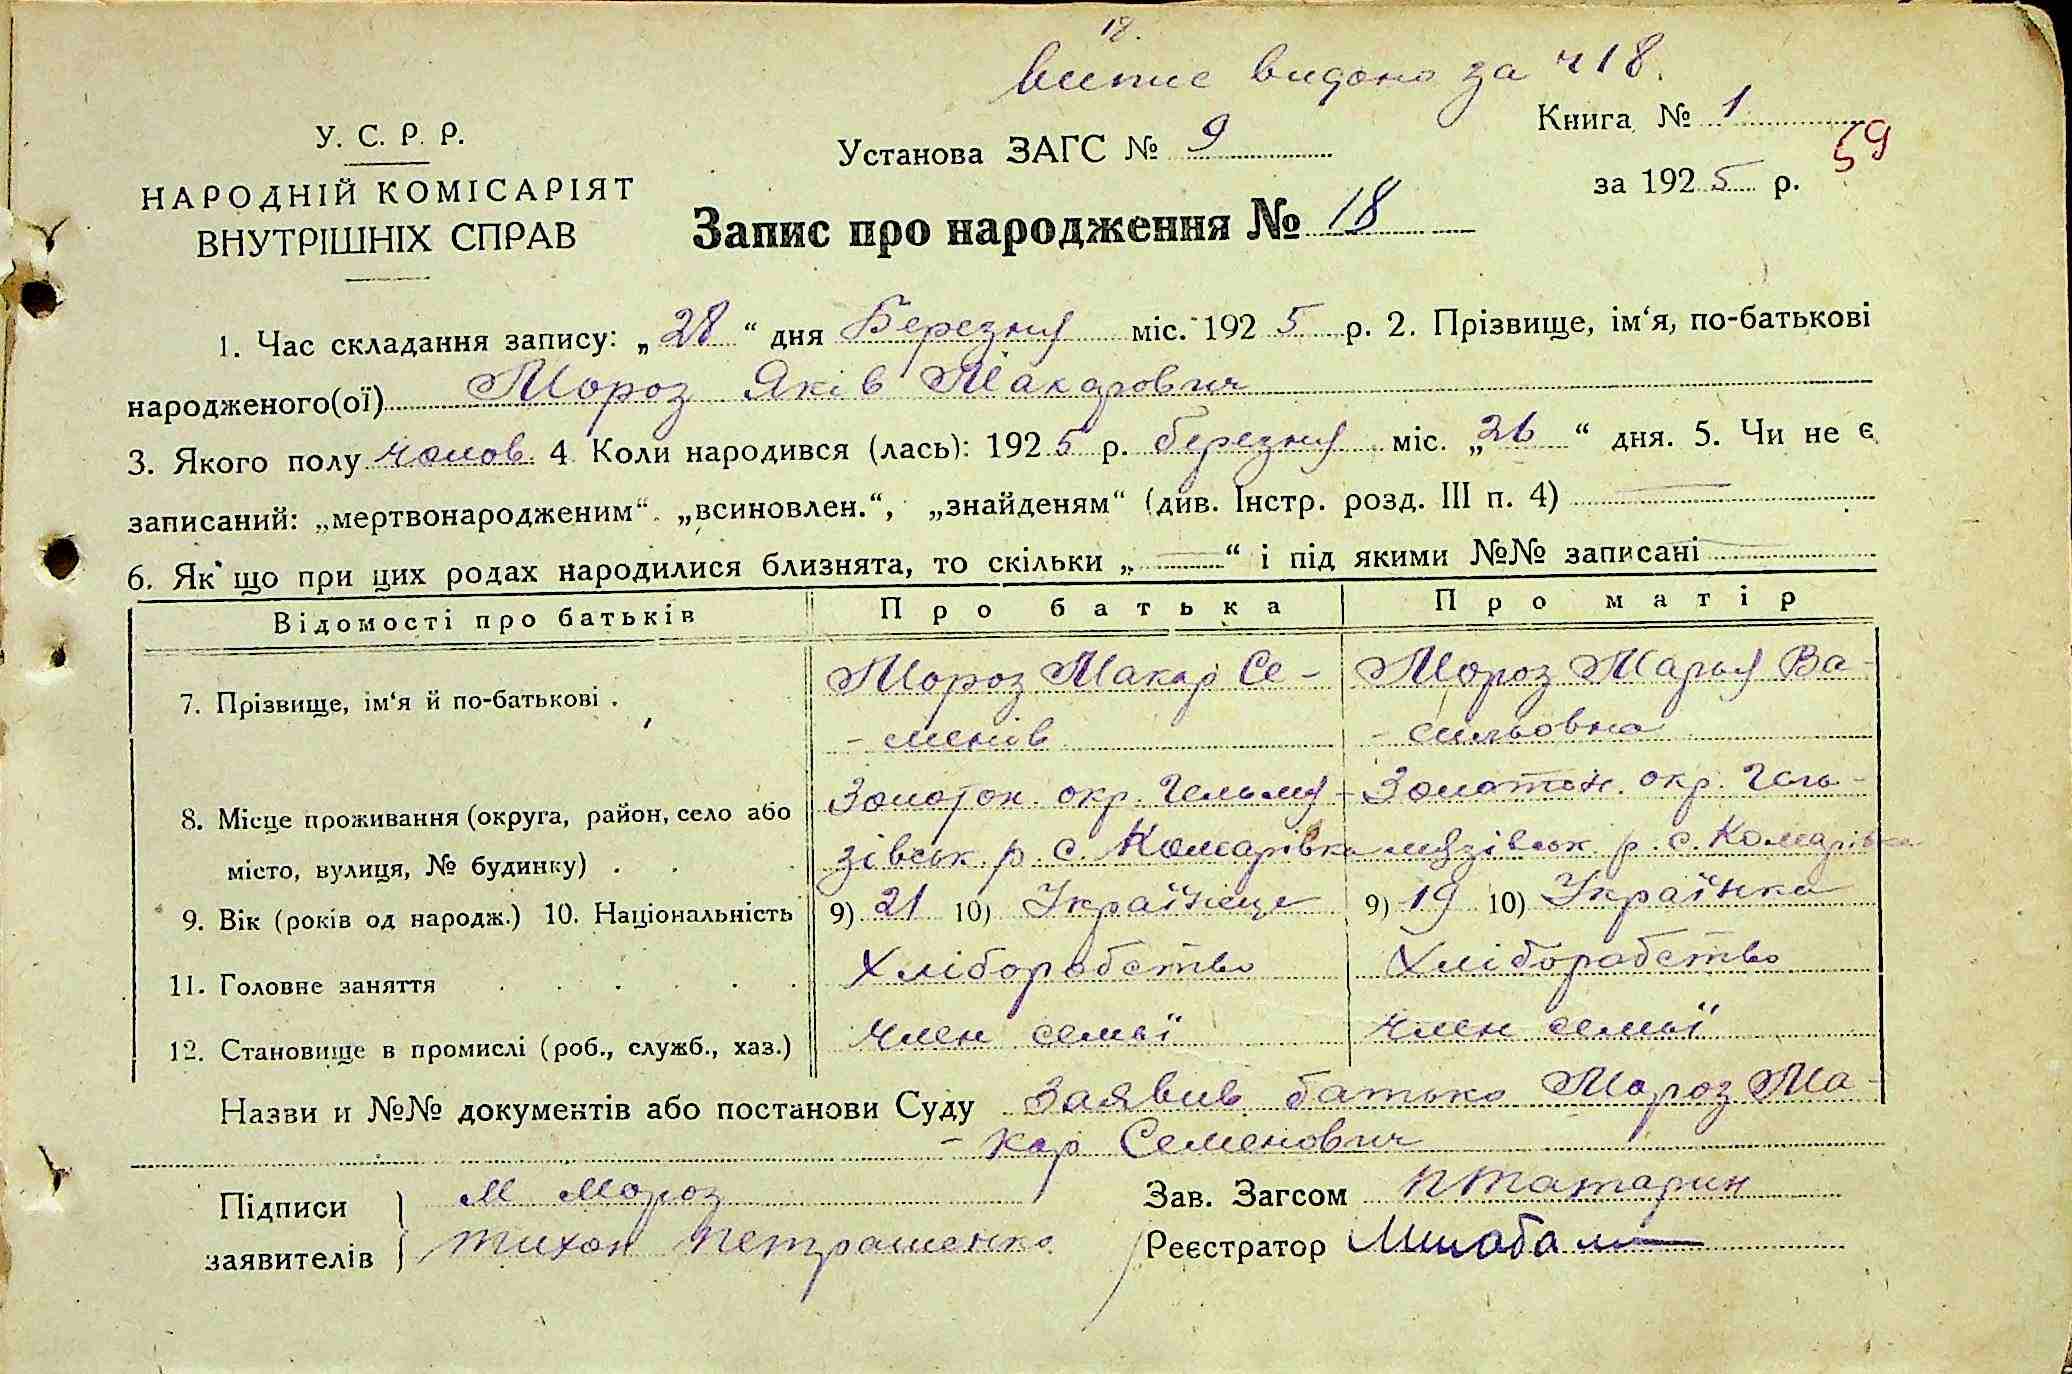 18.
випис видано за ч 18.
У. С. Р. Р.
НАРОДНІЙ КОМІСАРІЯТ
ВНУТРІШНІХ СПРАВ
Установа ЗАГС № 9
Книга № 1
59
за 1925 р.
Запис про народження № 18
1. Час складання запису: „28“ дня Березня міс. 1925 р. 2. Прізвище, ім‘я, по-батькові
народженого(ої) Мороз Яків Макарович
3. Якого полу чолов. 4 Коли народився (лась): 1925 р. березня міс. „26“ дня. 5. Чи не є
записаний: „мертвонародженим“. „всиновлен.“, „знайденям“ (див. Інстр. розд. III п. 4)
6. Як що при цих родах народилися близнята, то скільки „—“ і під якими №№ записані
Відомості про батьків Про батька Про матір
7. Прізвище, ім‘я й по-батькові . Мороз Макар Се- Мороз Марья Ва-
-менів -сильовна
8. Місце проживання (округа, район, село або Золотон. окр. Гельмя- Золотон. окр. Гель-
місто, вулиця, № будинку) . . зівськ. р. с. Комарівка мязівськ. р. с. Комарівка
9. Вік (років од народж.) 10. Національність 9) 21 10) Українець 9) 19 10) Українка
11. Головне заняття Хліборобство Хліборобство
12. Становище в промислі (роб., служб., хаз.) член семьї член семьї
Назви и №№ документів або постанови Суду Заявив батько Мороз Ма-
-кар Семенович
Підписи М Мороз Зав. Загсом П Татарин
заявителів Тихон Петрашенко Реєстратор